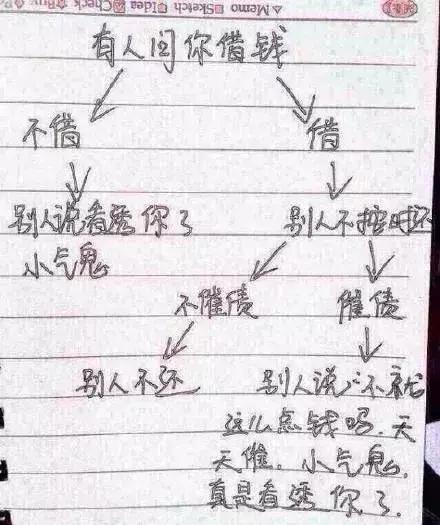 Memo Sketch Idea Check Buy
有人问你借钱
不借 借
别人说看透你了 别人不按时还
小气鬼
不催债 催债
别人不还 别人说:不就
这么点钱吗.天
天催.小气鬼.
真是看透你了.